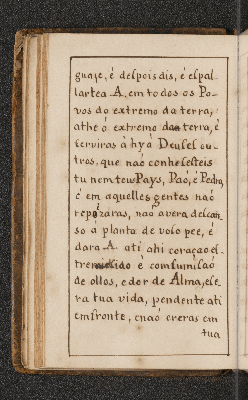 guaje, é despois dis, é espal-
lartea A. em todos os Po-
vos do extremo da terra,
athe ó extremo daa terra, é
serviras à hy à Deuses ou-
tros, que naó conhesesteis
tu nem teus Pays, Paó, é Pedra,
é em aquelles gentes naó
repozáras, naó avera descan-
so á planta de vosso pee, é
dara A. ati ahi coraçao es-
tremesido é comsumisaó
de ollos, e dor de Alma, ese-
ra tua vida, pendente ati
emfronte, enaó creras em
tua